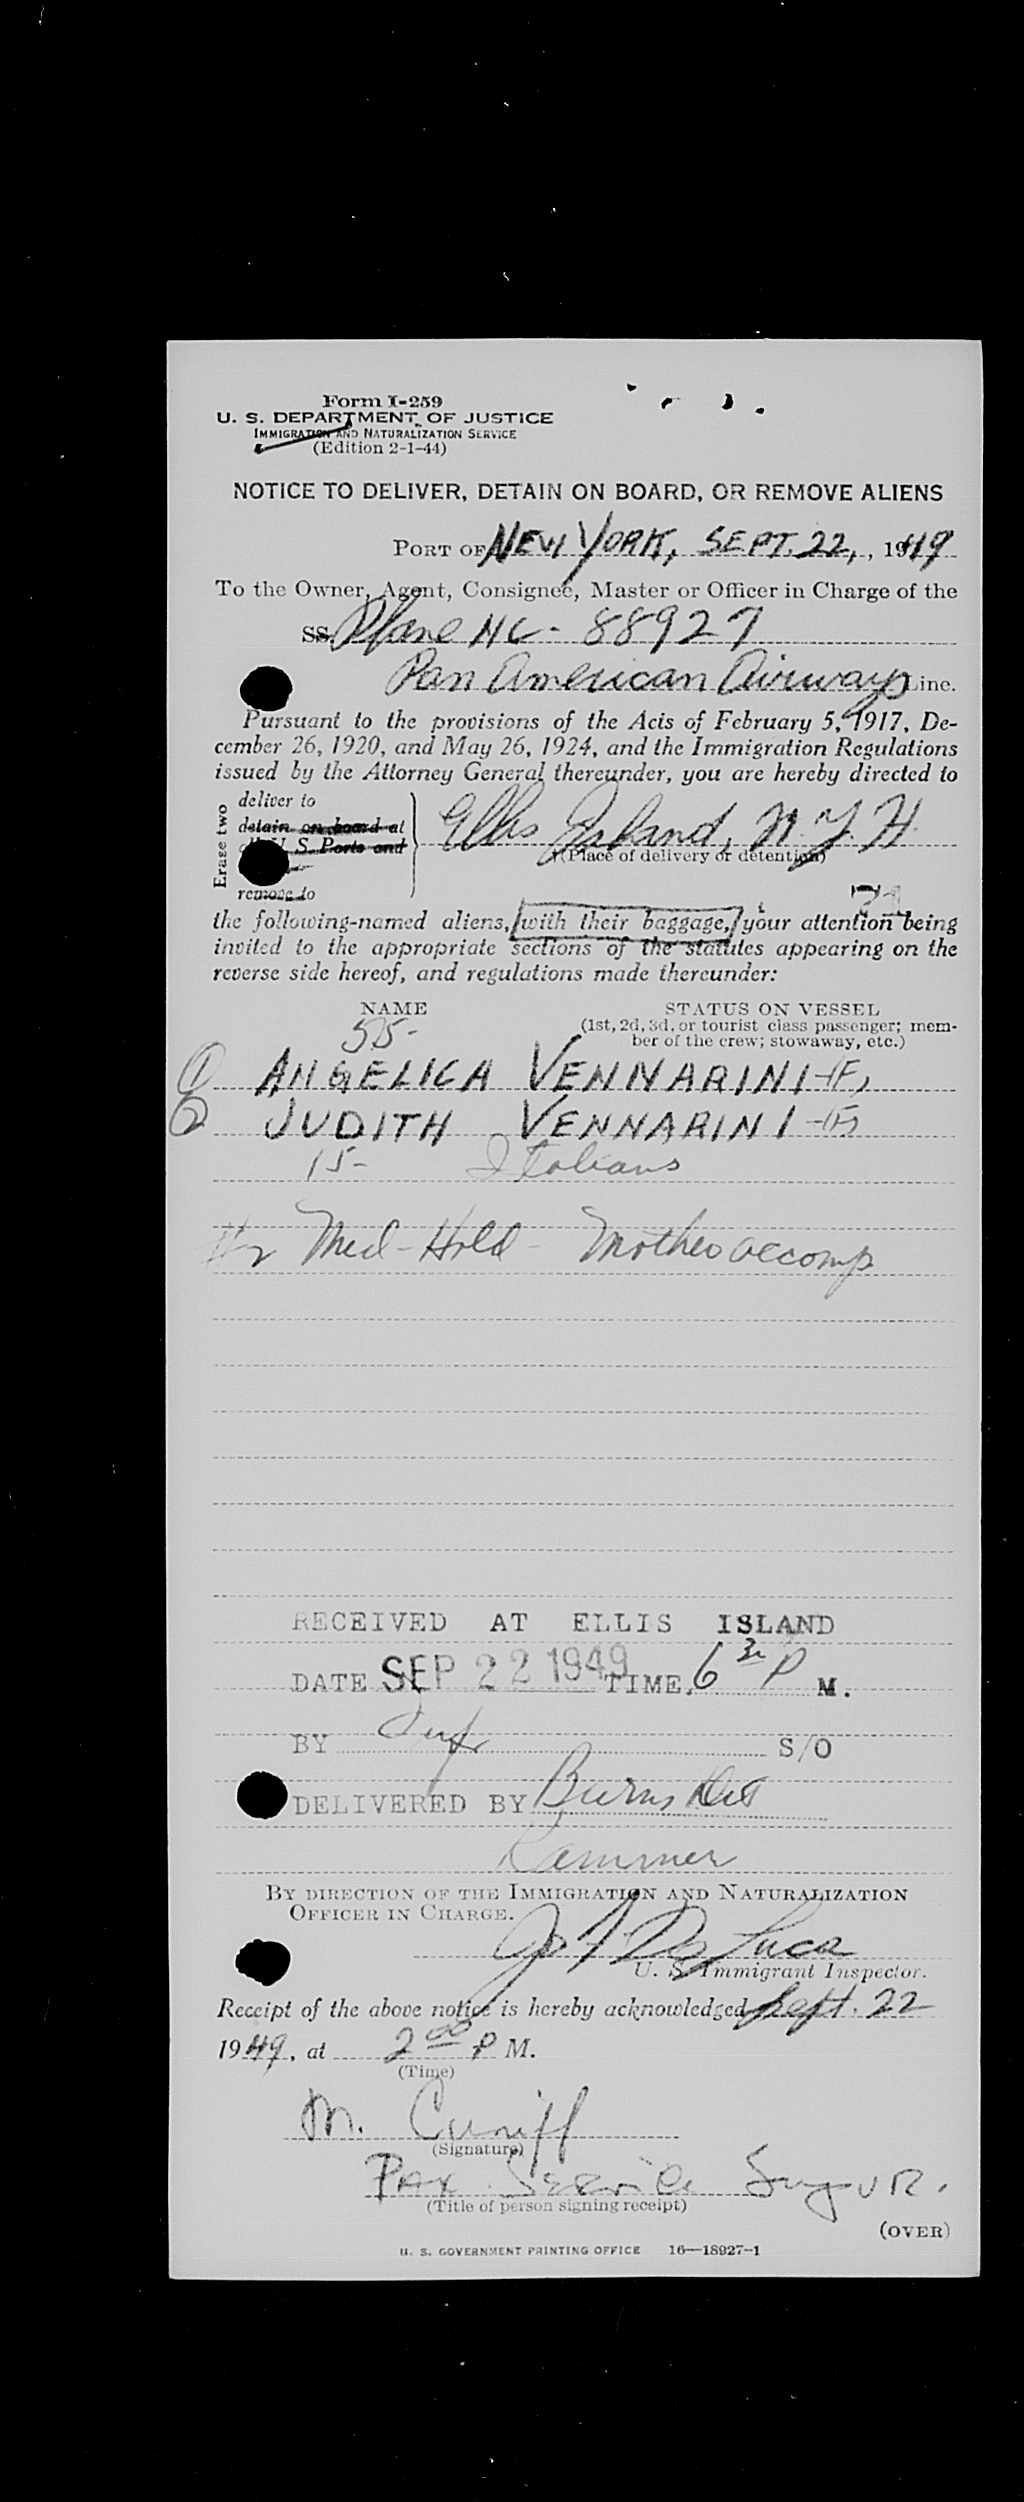 Form I-259
U. S. DEPARTMENT OF JUSTICE
IMMIGRATION AND NATURALIZATION SERVICE
(Edition 2-1-44)
NOTICE TO DELIVER, DETAIN ON BOARD, OR REMOVE ALIENS
PORT OF NEW YORK, SEPT. 22, , 1949
To the Owner, Agent, Consignee, Master or Officer in Charge of the
SS. Plane NC- 88927
Pan American Airways Line.
Pursuant to the provisions of the Acts of February 5, 1917, De-
cember 26, 1920, and May 26, 1924, and the Immigration Regulations
issued by the Attorney General thereunder, you are hereby directed to
Erase two
deliver to
detain on board at
U. S. Ports and
remove to
Ellis Island, N. Y. H.
(Place of delivery or detention)
the following-named aliens, with their baggage, your attention being
invited to the appropriate sections of the statutes appearing on the
reverse side hereof, and regulations made thereunder:
NAME
STATUS ON VESSEL
(1st, 2d, 3d, or tourist class passenger; mem-
ber of the crew; stowaway, etc.)
55-
1 ANGELICA VENNARINI (F)
2 JUDITH VENNARINI (F)
15- Italians
Med-Hold - Mother accomp
RECEIVED AT ELLIS ISLAND
DATE SEP 22 1949 TIME. 6 30 P M.
BY S/O
DELIVERED BY Burns Det
By DIRECTION OF THE IMMIGRATION AND NATURALIZATION
OFFICER IN CHARGE.
De Luca
U. S. Immigrant Inspector.
Receipt of the above notice is hereby acknowledged Sept. 22
1949, at 2 00 P M.
(Time)
M. Cuniff
(Signature)
Pax Service
(Title of person signing receipt)
(OVER)
U. S. GOVERNMENT PRINTING OFFICE 16—18927-1